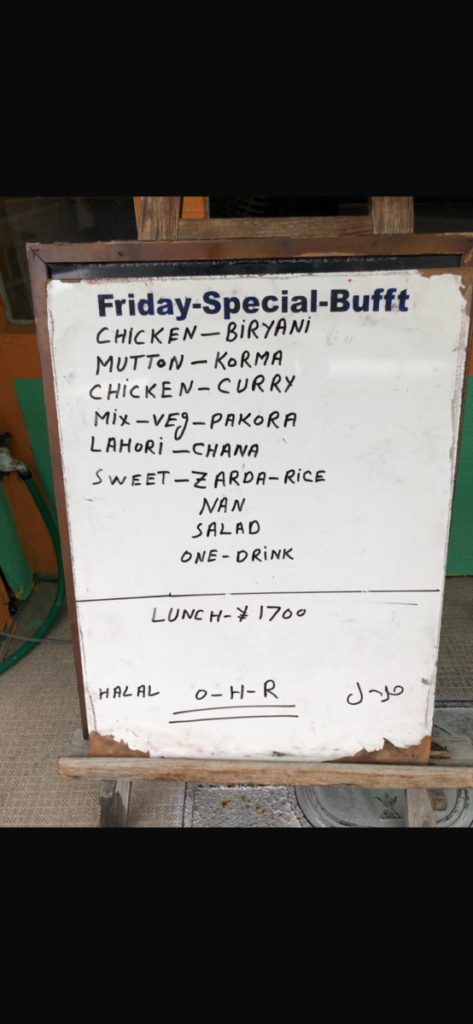 Friday-Special-Bufft
CHICKEN-BIRYANI
MUTTON-KORMA
CHICKEN-CURRY
MIX-VEg-PAKORA
LAHORI-CHANA
SWEET-ZARDA-RICE
NAN
SALAD
ONE-DRINK
LUNCH-¥1700
HALAL O-H-R حلال